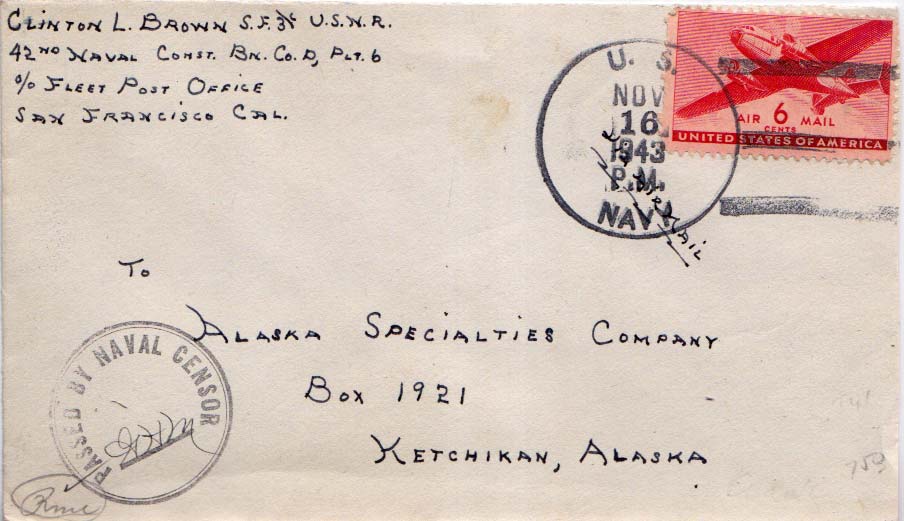 CLINTON L. BROWN S.F. 3/c U.S.N.R.
42ND NAVAL CONST. BN. CO. D, PLT. 6
c/o FLEET POST OFFICE
SAN FRANCISCO CAL.
U. S.
NOV
16
1943
P.M.
NAVY
AIR 6 MAIL
CENTS
UNITED STATES OF AMERICA
AIRMAIL
To
ALASKA SPECIALTIES COMPANY
Box 1921
KETCHIKAN, ALASKA
PASSED BY NAVAL CENSOR